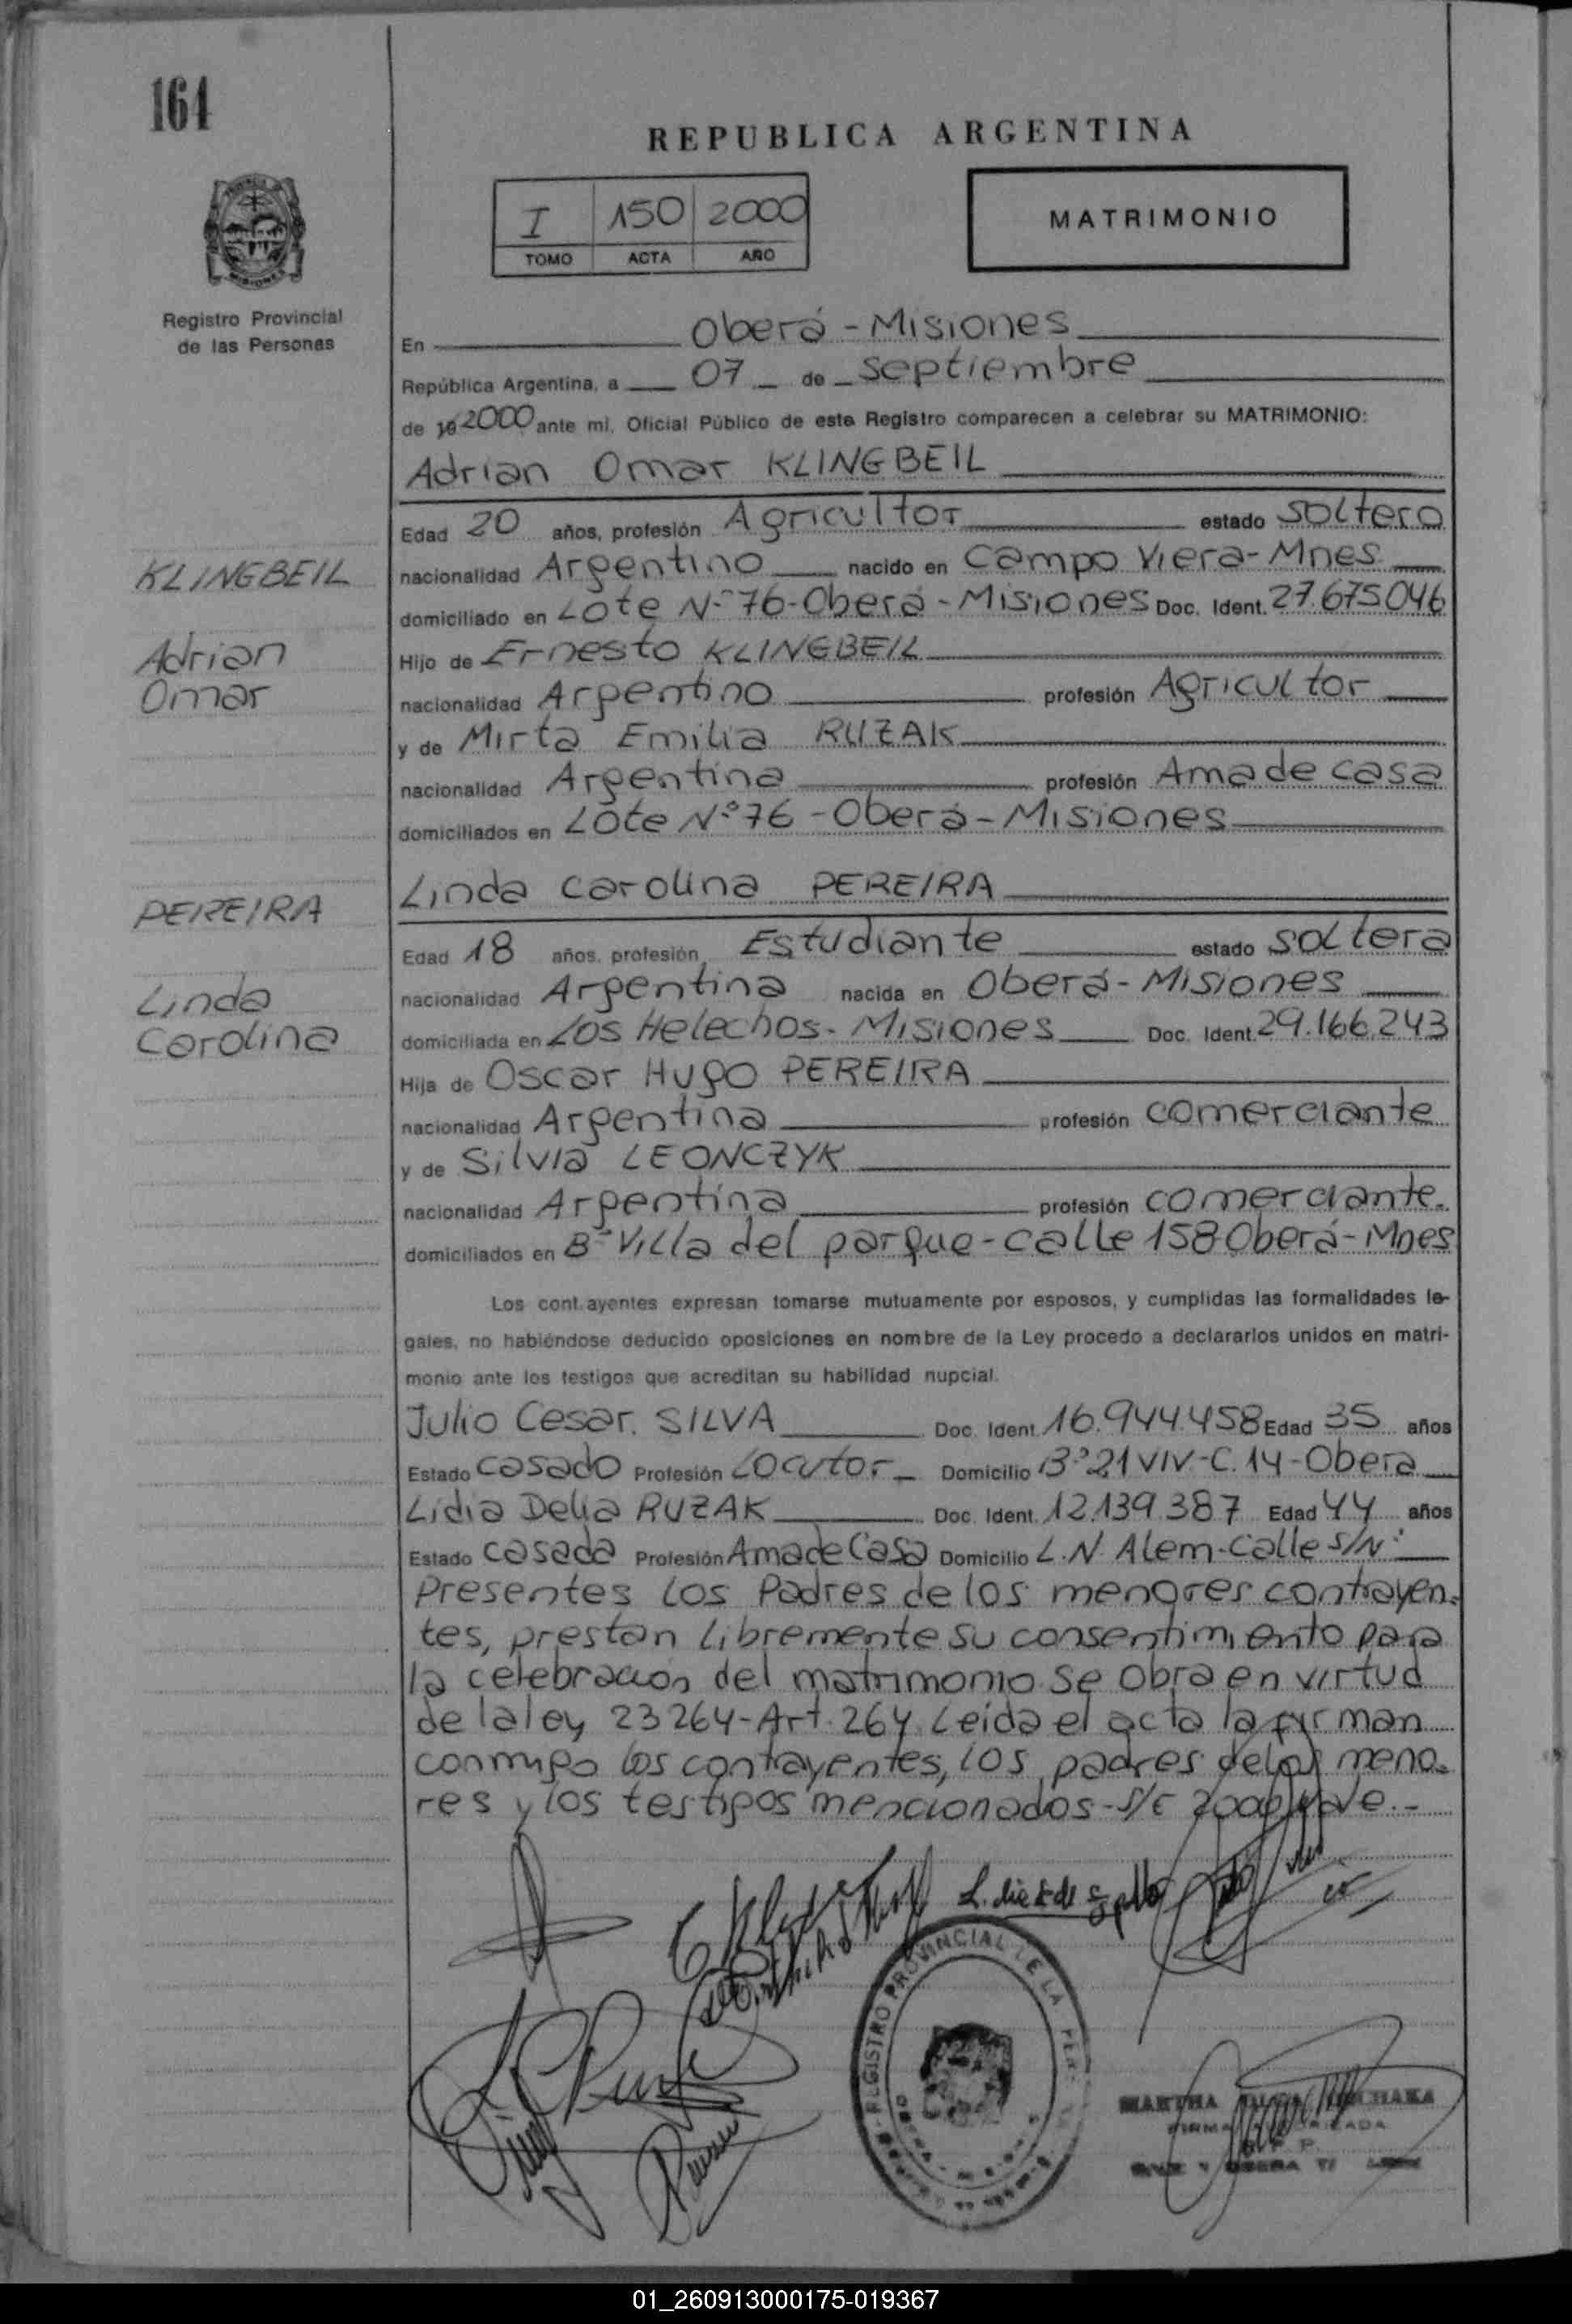 164
REPUBLICA ARGENTINA
I 150 2000
TOMO ACTA AÑO
MATRIMONIO
Registro Provincial
de las Personas
En Oberá - Misiones
República Argentina, a 07 de septiembre
de 19 2000 ante mi, Oficial Público de este Registro comparecen a celebrar su MATRIMONIO:
Adrian Omar KLINGBEIL
Edad 20 años, profesión Agricultor estado soltero
KLINGBEIL
nacionalidad Argentino nacido en Campo Viera - Mnes
domiciliado en Lote Nº 76 - Oberá - Misiones Doc. Ident. 27.675.046
Adrian
Hijo de Ernesto KLINGBEIL
Omar
nacionalidad Argentino profesión Agricultor
y de Mirta Emilia RUZAK
nacionalidad Argentina profesión Ama de casa
domiciliados en Lote Nº 76 - Oberá - Misiones
Linda Carolina PEREIRA
PEREIRA
Edad 18 años, profesión Estudiante estado soltera
Linda
nacionalidad Argentina nacida en Oberá - Misiones
Carolina
domiciliada en Los Helechos - Misiones Doc. Ident. 29.166.243
Hija de Oscar Hugo PEREIRA
nacionalidad Argentina profesión comerciante
y de Silvia LEONCZYK
nacionalidad Argentina profesión comerciante.
domiciliados en Bº Villa del parque - calle 158 Oberá - Mnes
Los cont.ayentes expresan tomarse mutuamente por esposos, y cumplidas las formalidades le-
gales, no habiéndose deducido oposiciones en nombre de la Ley procedo a declararlos unidos en matri-
monio ante los testigos que acreditan su habilidad nupcial.
Julio Cesar. SILVA Doc. Ident. 16.944.458 Edad 35 años
Estado casado Profesión Locutor Domicilio Bº 21 VIV - C. 14 - Obera
Lidia Delia RUZAK Doc. Ident. 12.139.387 Edad 44 años
Estado casada Profesión Ama de Casa Domicilio L. N. Alem - Calle S/Nº
Presentes los Padres de los menores contrayen-
tes, prestan libremente su consentimiento para
la celebración del matrimonio se obra en virtud
de la ley 23264 - Art. 264. Leida el acta la firman
conmigo los contrayentes, los padres de los meno-
res y los testigos mencionados - S/C 2000 vale. -
REGISTRO PROVINCIAL DE LA PER
MARTHA
FIRMA
01_260913000175-019367